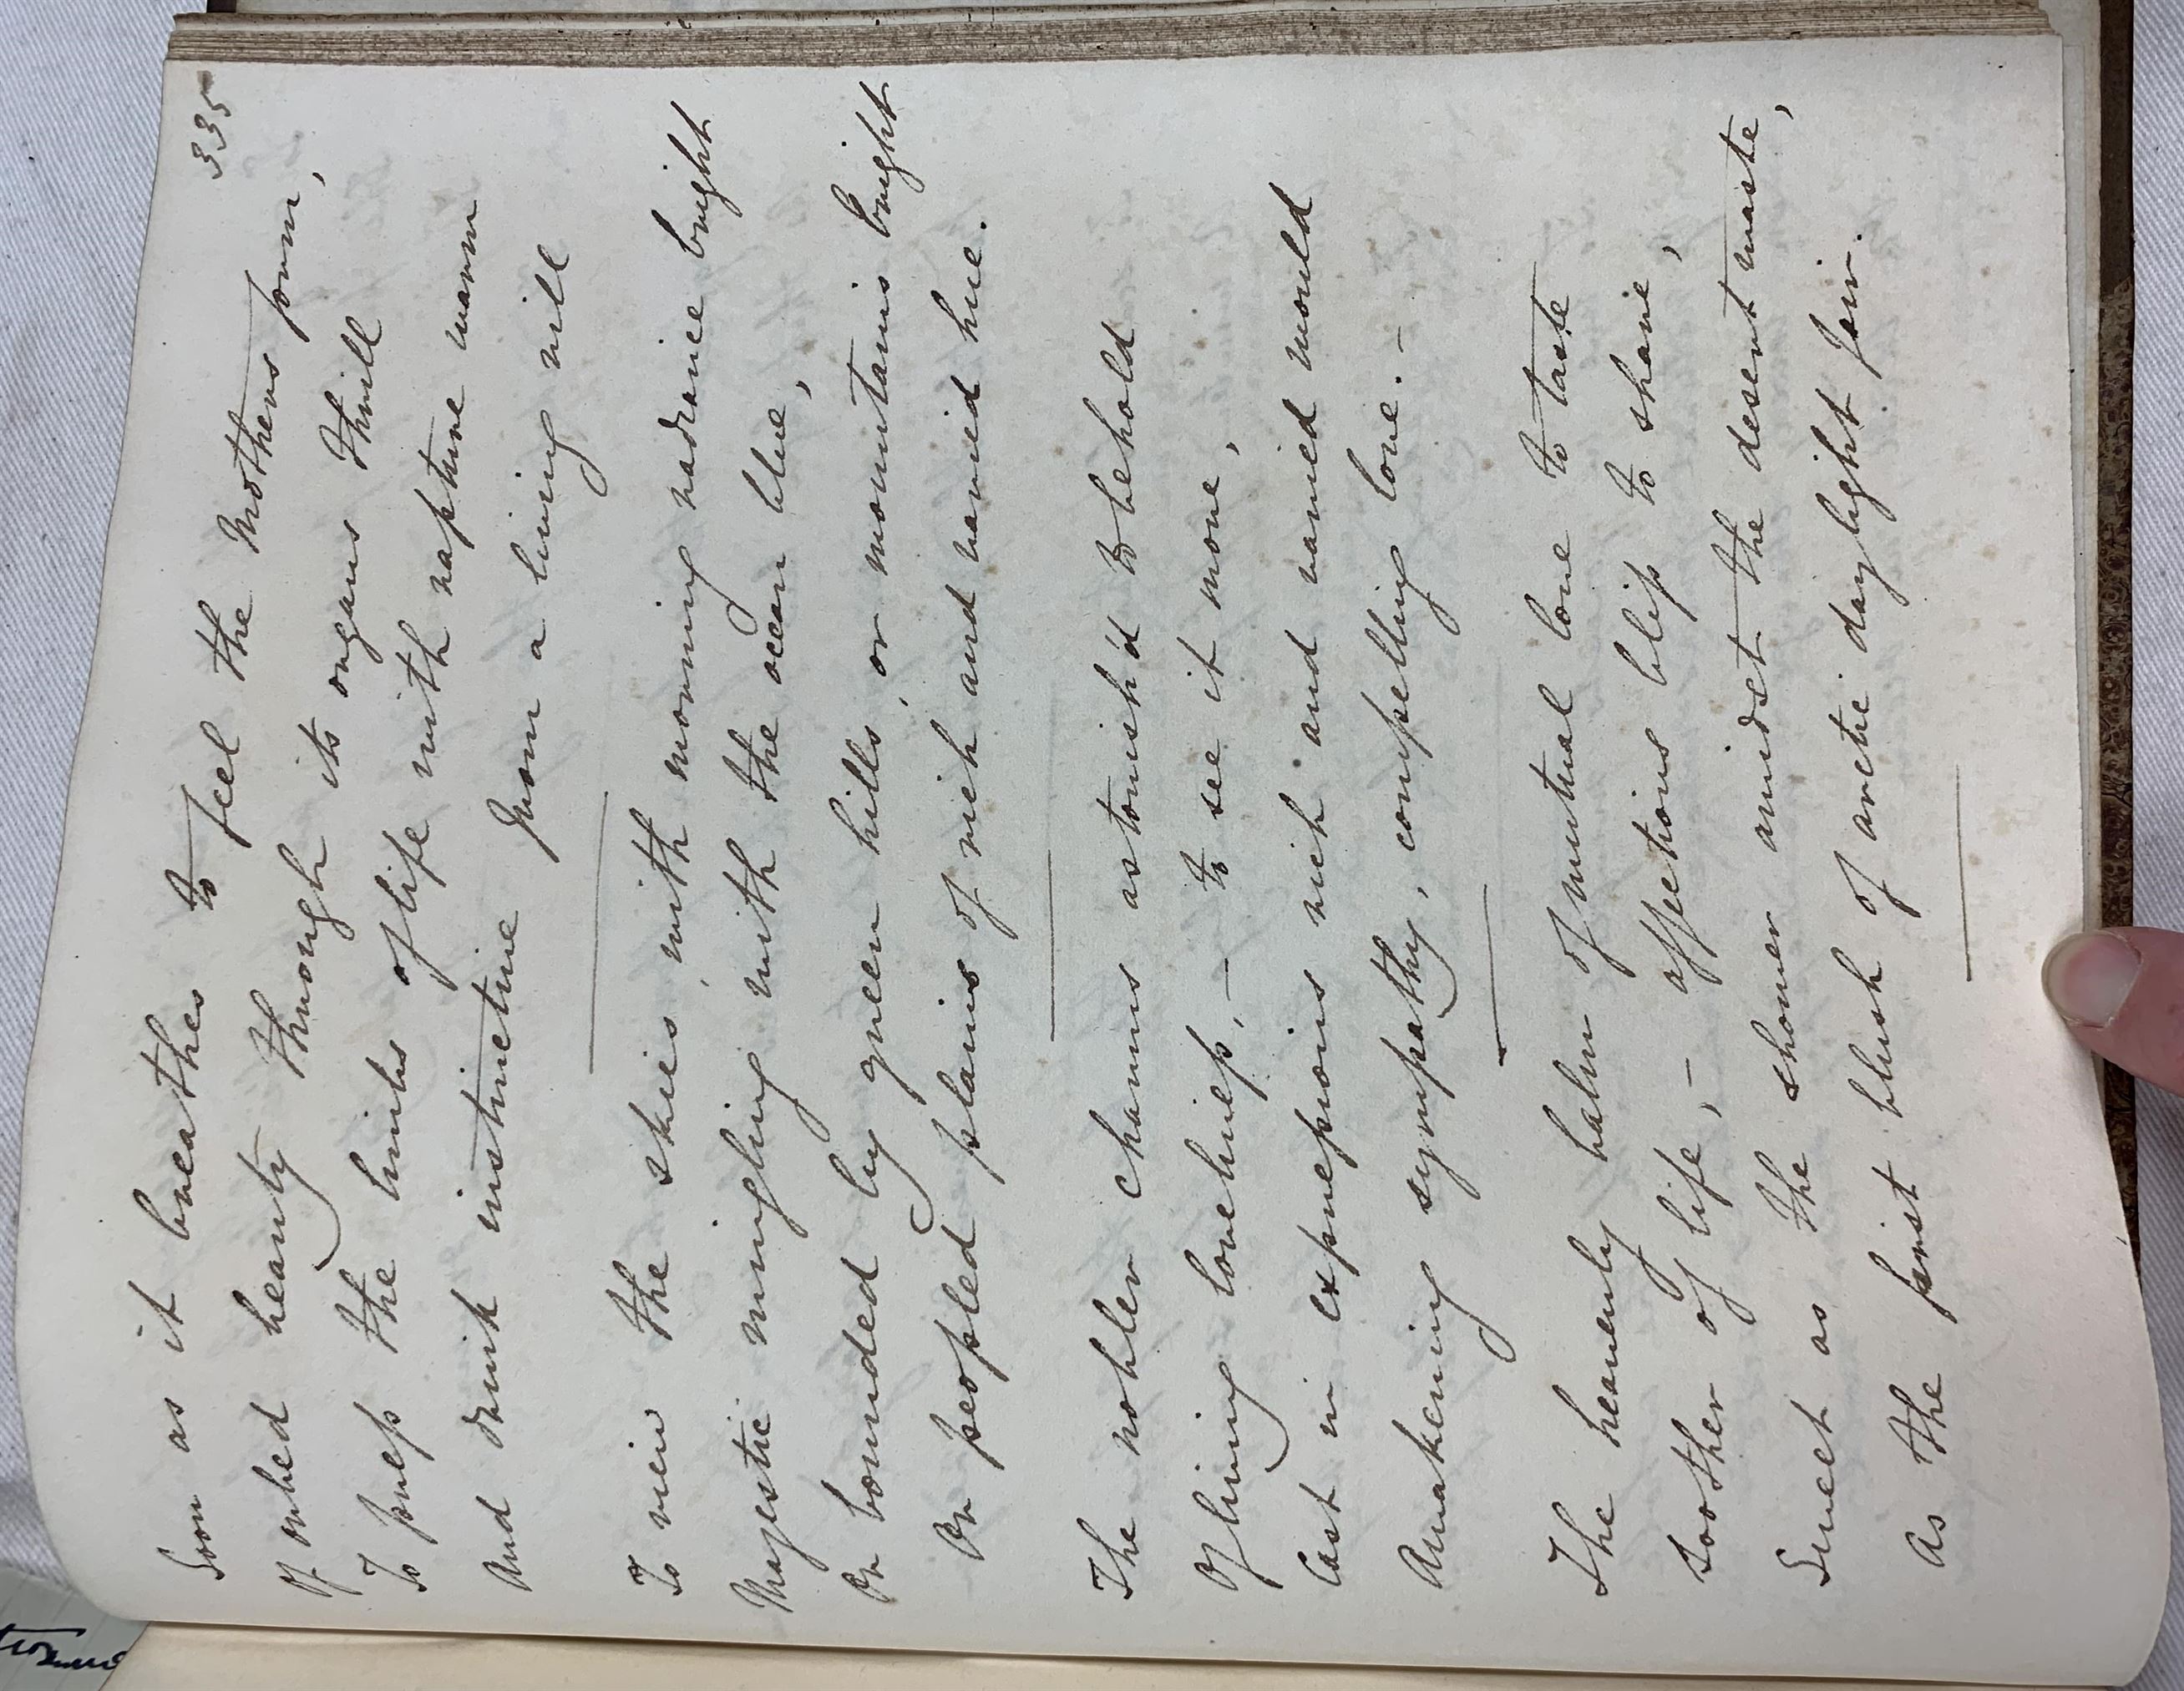 335
Soon as it breathes to feel the mothers form,
Of orbed beauty through its organs thrill
To press the limbs of life with rapture warm
And drink instinctive from a living rill

To view the skies, with morning radiance bright
Majestic mingling with the ocean blue,
Or bounded by green hills, or mountains bright
Or peopled plains of rich and varied hue.

The nobler charms astonish'd to behold
Of living loveliness, – to see it move,
Cast in expressions rich and varied mould
Awakening sympathy, compelling love. –

The heavenly balm of mutual love to taste
Soother of life, – affections bliss to share,
Sweet as the shower amidst the desert waste,
As the faint blush of arctic daylight fair.